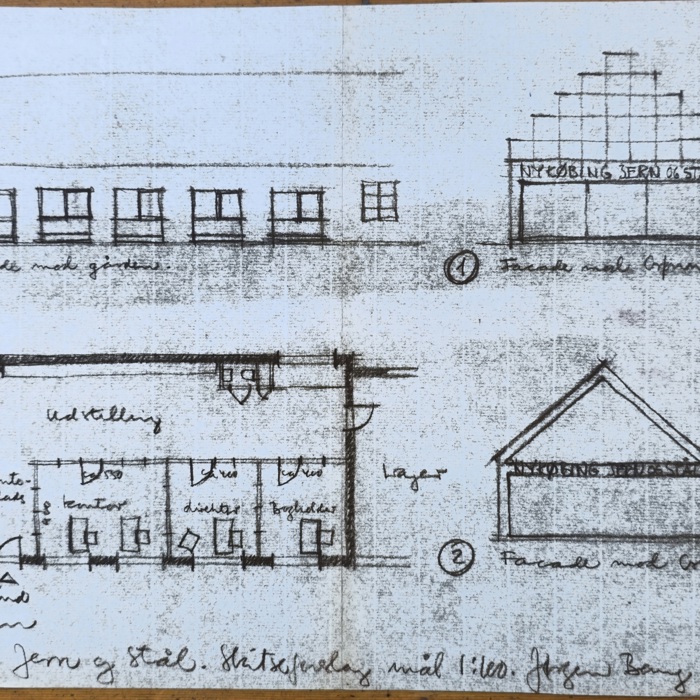 NYKØBING JERN OG ST
de mod gården.
1 Facade mod
Udstilling
kontor
direktør
bogholder
Lager
NYKØBING JERN OG STÅL
2 Facade mod
Jern og Stål. Skitseforslag mål 1:100. Jørgen Bang